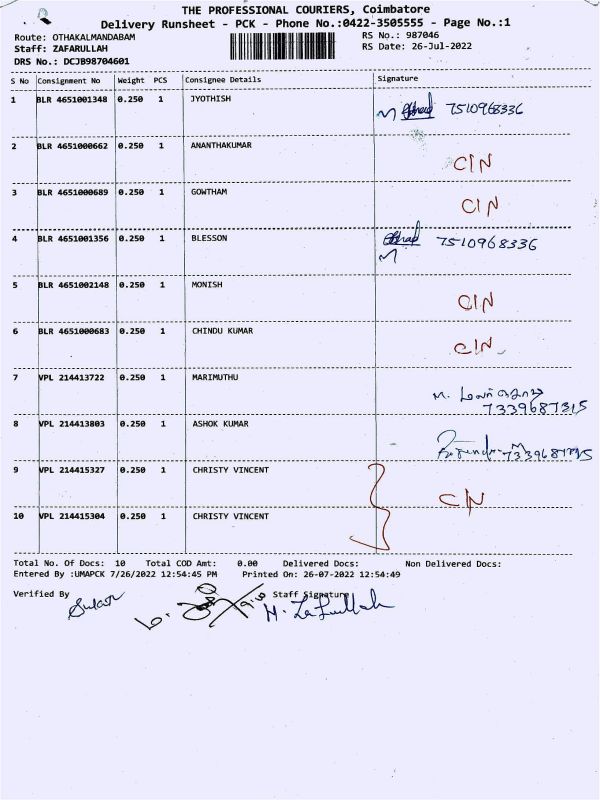 THE PROFESSIONAL COURIERS, Coimbatore
Delivery Runsheet - PCK - Phone No.:0422-3505555 - Page No.:1
Route: OTHAKALMANDABAM RS No.: 987046
Staff: ZAFARULLAH RS Date: 26-Jul-2022
DRS No.: DCJB98704601
S No Consignment No Weight PCS Consignee Details Signature
1 BLR 4651001348 0.250 1 JYOTHISH 7510968336
2 BLR 4651000662 0.250 1 ANANTHAKUMAR CIN
3 BLR 4651000689 0.250 1 GOWTHAM CIN
4 BLR 4651001356 0.250 1 BLESSON 7510968336
5 BLR 4651002148 0.250 1 MONISH CIN
6 BLR 4651000683 0.250 1 CHINDU KUMAR CIN
7 VPL 214413722 0.250 1 MARIMUTHU
7339687315
8 VPL 214413803 0.250 1 ASHOK KUMAR
9 VPL 214415327 0.250 1 CHRISTY VINCENT
CIN
10 VPL 214415304 0.250 1 CHRISTY VINCENT
Total No. Of Docs: 10 Total COD Amt: 0.00 Delivered Docs: Non Delivered Docs:
Entered By :UMAPCK 7/26/2022 12:54:45 PM Printed On: 26-07-2022 12:54:49
Verified By Staff Signature